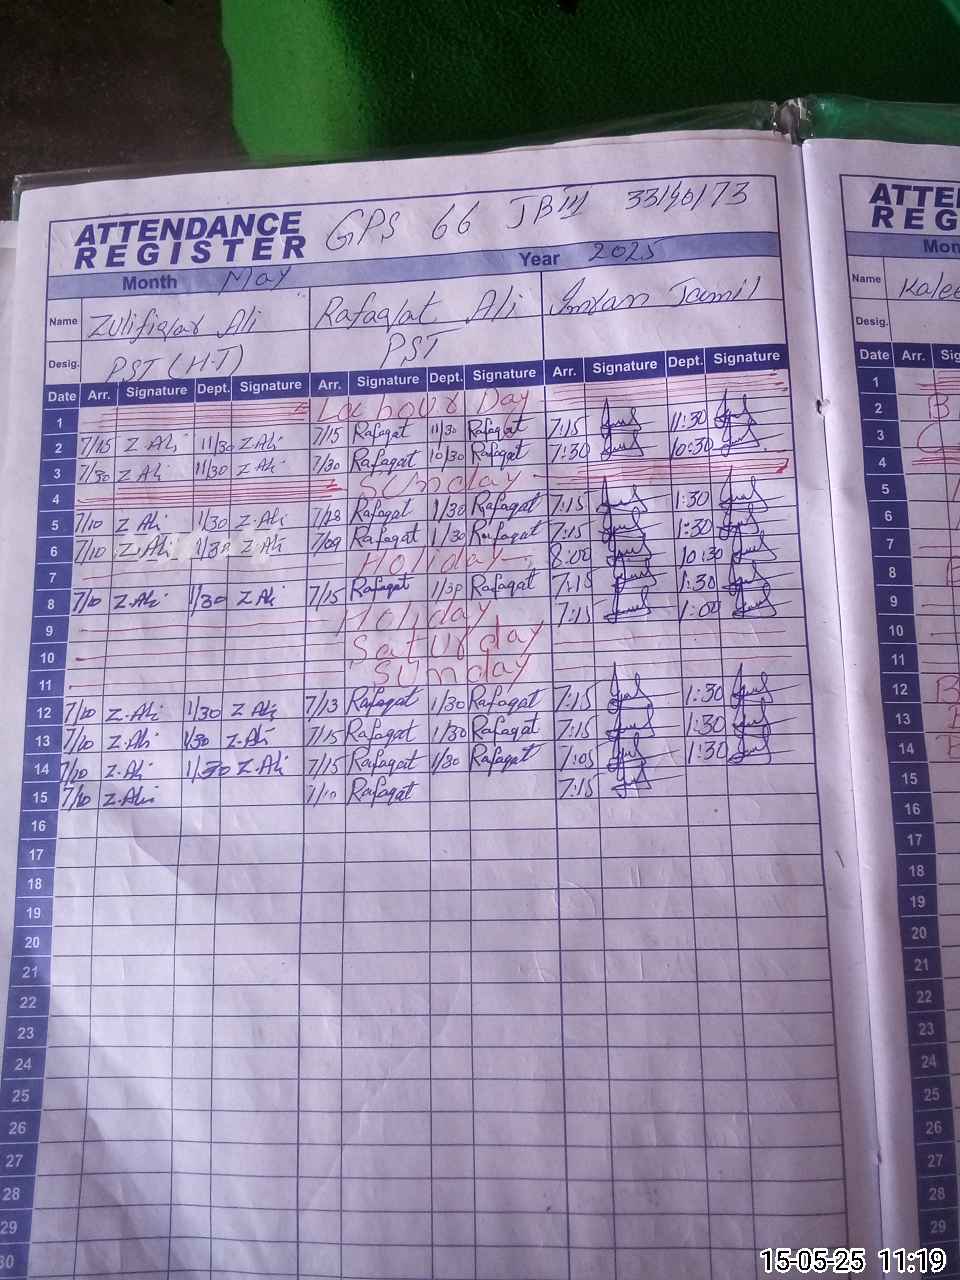 ATTENDANCE REGISTER GPS 66 JB III 33140173
Month May Year 2025
Name Zulifiqar Ali Rafaqat Ali Imran Jamil
Desig. PST (H.T) PST
Date Arr. Signature Dept. Signature Arr. Signature Dept. Signature Arr. Signature Dept. Signature
1 Labour Day
2 7/15 Z.Ali 11/30 Z.Ali 7/15 Rafaqat 11/30 Rafaqat 7:15 11:30
3 7/30 Z.Ali 11/30 Z.Ali 7/30 Rafaqat 10/30 Rafaqat 7:30 10:30
4 Sunday
5 7/10 Z.Ali 1/30 Z.Ali Rafaqat 1/30 Rafaqat 7:15 1:30
6 7/10 Z.Ali 1/30 Z.Ali 7/09 Rafaqat 1/30 Rafaqat 7:15 1:30
7 Holiday 8:00 10:30
8 7/10 Z.Ali 1/30 Z.Ali 7/15 Rafaqat 1/30 Rafaqat 7:15 1:30
9 Holiday 7:15 1:00
10 Saturday
11 Sunday
12 7/10 Z.Ali 1/30 Z.Ali 7/13 Rafaqat 1/30 Rafaqat 7:15 1:30
13 7/10 Z.Ali 1/30 Z.Ali 7/15 Rafaqat 1/30 Rafaqat 7:15 1:30
14 7/10 Z.Ali 1/30 Z.Ali 7/15 Rafaqat 1/30 Rafaqat 7:05 1:30
15 7/10 Z.Ali 7/10 Rafaqat 7:15
16
17
18
19
20
21
22
23
24
25
26
27
28
29
30
ATTE
REG
Mon
Name Kalee
Desig.
Date Arr. Sig
1
2
3
4
5
6
7
8
9
10
11
12
13
14
15
16
17
18
19
20
21
22
23
24
25
26
27
28
29
15-05-25 11:19